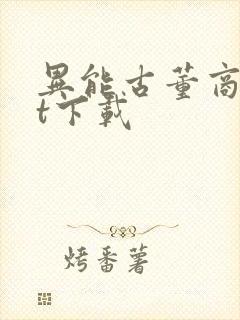 異能古董商
t下載
烤番薯